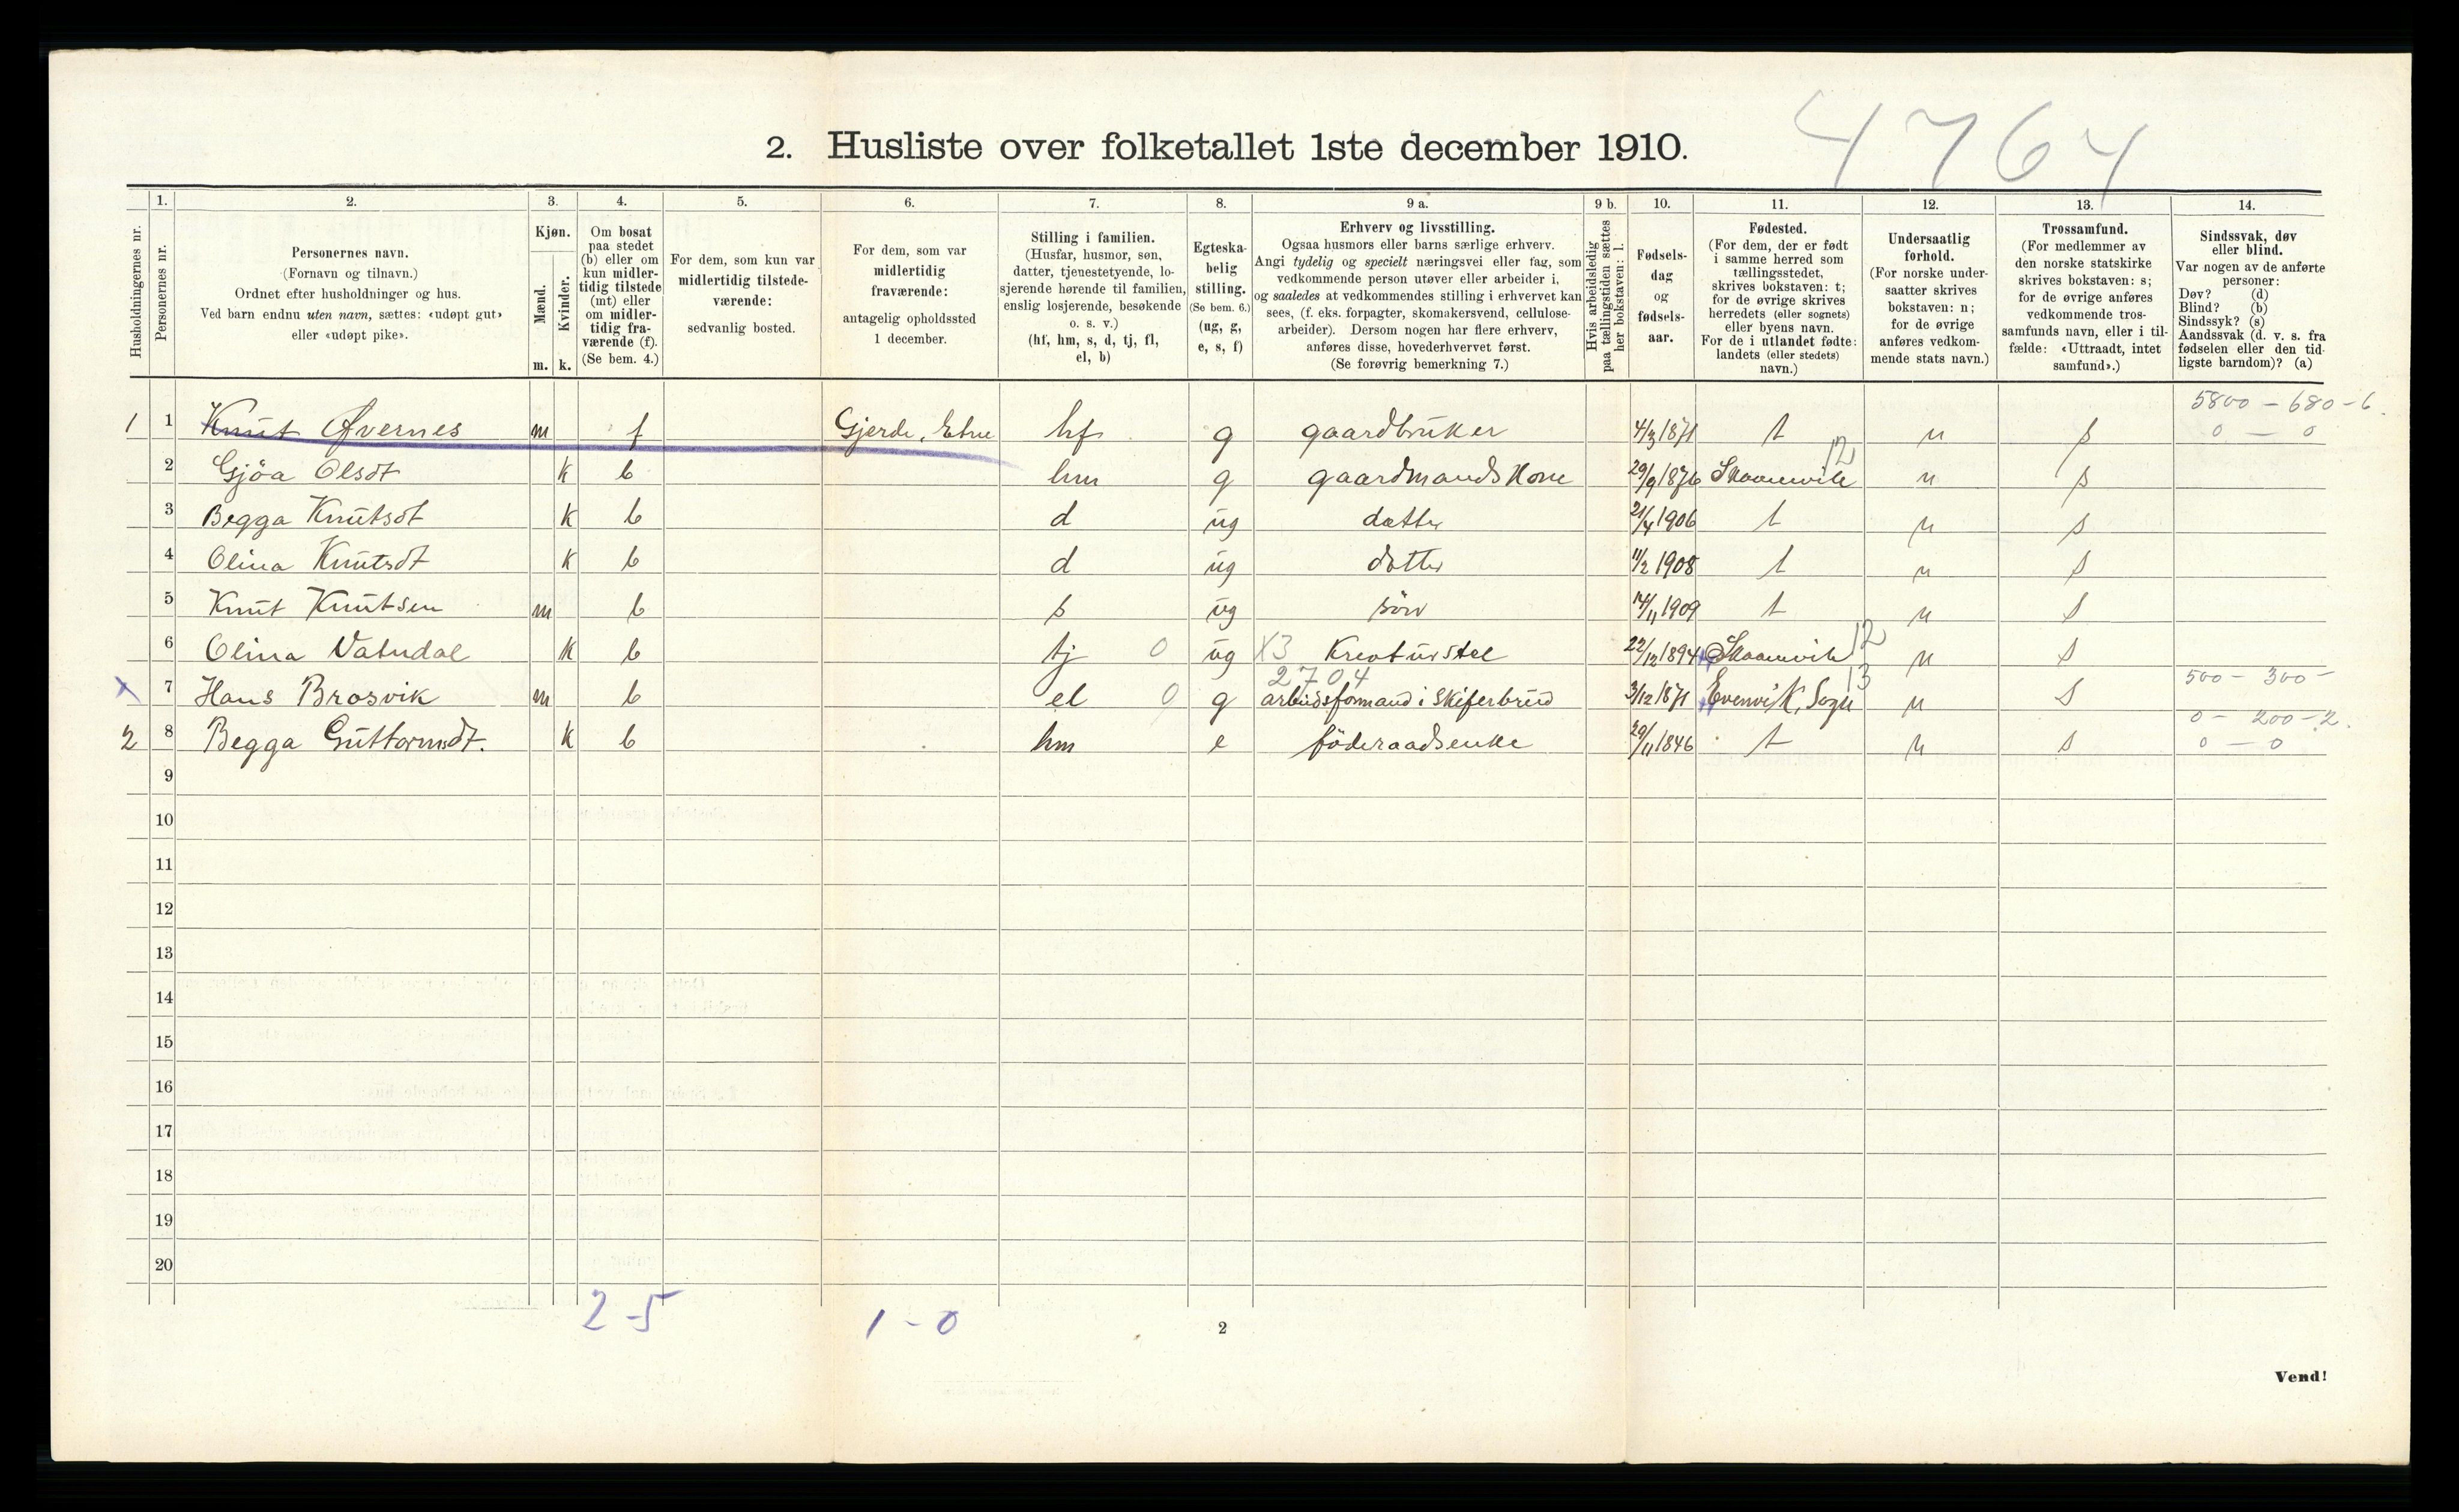 4764
2. Husliste over folketallet 1ste december 1910.
Husholdningernes nr.
1. Personernes nr.
2. Personernes navn.
(Fornavn og tilnavn.)
Ordnet efter husholdninger og hus.
Ved barn endnu uten navn, sættes: «udøpt gut»
eller «udøpt pike».
3. Kjøn.
Mænd. Kvinder.
m. k.
4. Om bosat
paa stedet
(b) eller om
kun midler-
tidig tilstede
(mt) eller
om midler-
tidig fra-
værende (f).
(Se bem. 4.)
5. For dem, som kun var
midlertidig tilstede-
værende:
sedvanlig bosted.
6. For dem, som var
midlertidig
fraværende:
antagelig opholdssted
1 december.
7. Stilling i familien.
(Husfar, husmor, søn,
datter, tjenestetyende, lo-
sjerende hørende til familien,
enslig losjerende, besøkende
o. s. v.)
(hf, hm, s, d, tj, fl,
el, b)
8. Egteska-
belig
stilling.
(Se bem. 6.)
(ug, g,
e, s, f)
9 a. Erhverv og livsstilling.
Ogsaa husmors eller barns særlige erhverv.
Angi tydelig og specielt næringsvei eller fag, som
vedkommende person utøver eller arbeider i,
og saaledes at vedkommendes stilling i erhvervet kan
sees, (f. eks. forpagter, skomakersvend, cellulose-
arbeider). Dersom nogen har flere erhverv,
anføres disse, hovederhvervet først.
(Se forøvrig bemerkning 7.)
9 b. Hvis arbeidsledig
paa tællingstiden sættes
her bokstaven: l.
10. Fødsels-
dag
og
fødsels-
aar.
11. Fødested.
(For dem, der er født
i samme herred som
tællingsstedet,
skrives bokstaven: t;
for de øvrige skrives
herredets (eller sognets)
eller byens navn.
For de i utlandet fødte:
landets (eller stedets)
navn.)
12. Undersaatlig
forhold.
(For norske under-
saatter skrives
bokstaven: n;
for de øvrige
anføres vedkom-
mende stats navn.)
13. Trossamfund.
(For medlemmer av
den norske statskirke
skrives bokstaven: s;
for de øvrige anføres
vedkommende tros-
samfunds navn, eller i til-
fælde: «Uttraadt, intet
samfund».)
14. Sindssvak, døv
eller blind.
Var nogen av de anførte
personer:
Døv? (d)
Blind? (b)
Sindssyk? (s)
Aandssvak (d. v. s. fra
fødselen eller den tid-
ligste barndom)? (a)
5800 - 680 - 6.
1 1 Knut Øvernes m f Gjerde, Etne hf g gaardbruker 4/3 1871 t n s 0 - 0
2 Gjöa Olsdt k b hm g gaardmandskone 29/9 1876 Skaanevik 12 n s
3 Begga Knutsdt k b d ug datter 21/4 1906 t n s
4 Olina Knutsdt k b d ug datter 11/2 1908 t n s
5 Knut Knutsen m b s ug sön 14/11 1909 t n s
6 Olina Vatndal k b tj 0 ug X3 Kreaturstel 22/12 1894 Skaanevik 12 n s
2704 500 - 300 -
x 7 Hans Brosvik m b el 0 g arbeidsformand i Skiferbrud 3/12 1871 Evenvik, Sogn 13 n s
0 - 200 - 2.
2 8 Begga Guttormsdt. k b hm e föderaadsenke 29/11 1846 t n s 0 - 0
9
10
11
12
13
14
15
16
17
18
19
20
2-5 1-0
2
Vend!